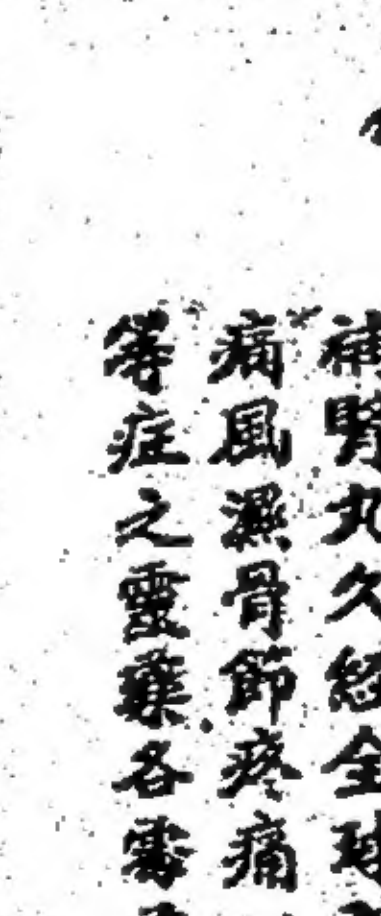 補腎丸久經全球
痛風濕骨節疼痛
等症之靈藥各